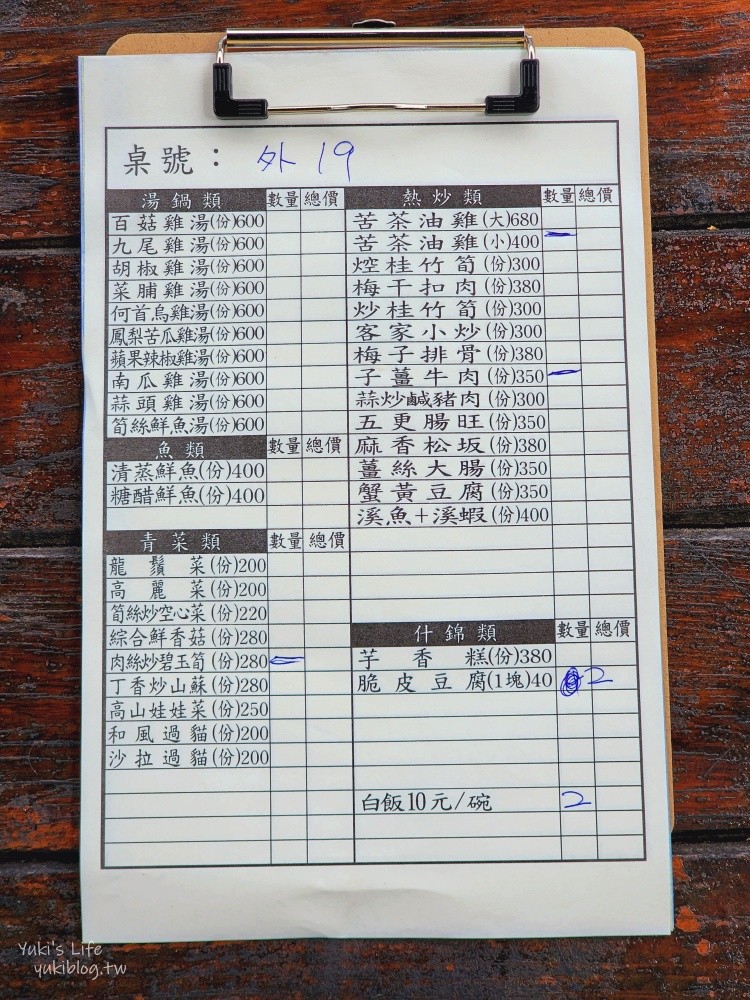 桌號： 外 19
湯鍋類 數量 總價
百菇雞湯(份)600
九尾雞湯(份)600
胡椒雞湯(份)600
菜脯雞湯(份)600
何首烏雞湯(份)600
鳳梨苦瓜雞湯(份)600
蘋果辣椒雞湯(份)600
南瓜雞湯(份)600
蒜頭雞湯(份)600
筍絲鮮魚湯(份)600
魚類 數量 總價
清蒸鮮魚(份)400
糖醋鮮魚(份)400
青菜類 數量 總價
龍鬚菜(份)200
高麗菜(份)200
筍絲炒空心菜(份)220
綜合鮮香菇(份)280
肉絲炒碧玉筍(份)280 一
丁香炒山蘇(份)280
高山娃娃菜(份)250
和風過貓(份)200
沙拉過貓(份)200
熱炒類 數量 總價
苦茶油雞(大)680
苦茶油雞(小)400 一
焢桂竹筍(份)300
梅干扣肉(份)380
炒桂竹筍(份)300
客家小炒(份)300
梅子排骨(份)380
子薑牛肉(份)350 一
蒜炒鹹豬肉(份)300
五更腸旺(份)350
麻香松坂(份)380
薑絲大腸(份)350
蟹黃豆腐(份)350
溪魚＋溪蝦(份)400
什錦類 數量 總價
芋香糕(份)380
脆皮豆腐(1塊)40 2
白飯10元/碗 2
Yuki's Life
yukiblog.tw